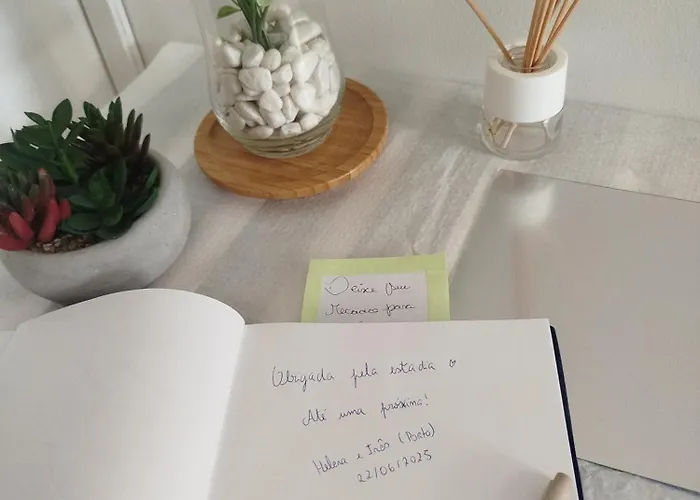 Deixe Um
Recado para
Obrigada pela estadia ♡
Até uma próxima!
Helena e Inês (Porto)
22/06/2025